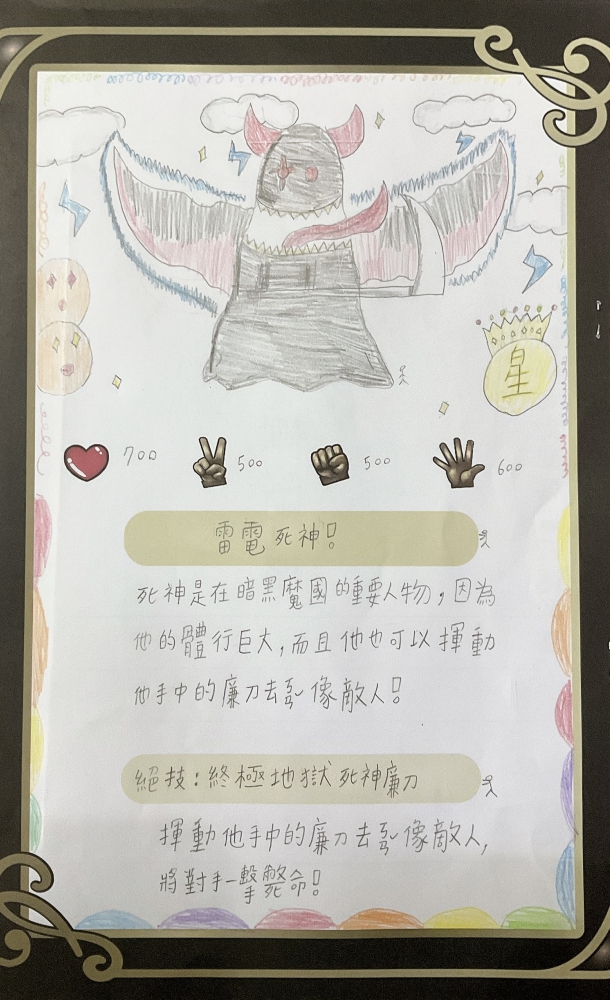 星
700 500 500 600
雷電死神!
死神是在暗黑魔國的重要人物，因為
他的體行巨大，而且他也可以揮動
他手中的廉刀去 像敵人!
絕技：終極地獄死神廉刀
揮動他手中的廉刀去 像敵人，
將對手一擊斃命!